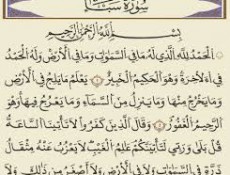 سورة سبأ
بسم الله الرحمن الرحيم
الحمد لله الذي له ما في السموت وما في الأرض وله الحمد
في الآخرة وهو الحكيم الخبير ١ يعلم ما يلج في الأرض
وما يخرج منها وما ينزل من السماء وما يعرج فيها وهو
الرحيم الغفور ٢ وقال الذين كفروا لا تأتينا الساعة
قل بلى وربي لتأتينكم علم الغيب لا يعزب عنه مثقال
ذرة في السموت ولا في الأرض ولا أصغر من ذلك ولا